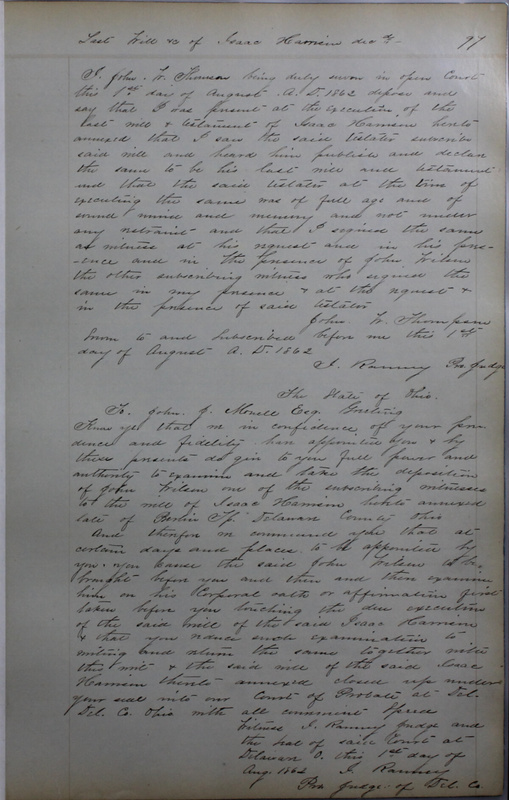 Last Will &c of Isaac Harrison dec'd 97
I John W. Thomson being duly sworn in open Court
this 1st day of August A.D. 1862 depose and
say that I was present at the execution of the
last will & testament of Isaac Harrison hereto
annexed that I saw the said testator subscribe
said will and heard him publish and declare
the same to be his last will and testament
and that the said testator at the time of
executing the same was of full age and of
sound mind and memory and not under
any restraint and that I signed the same
as witness at his request and in his pres-
-ence and in the presence of John Wilson
the other subscribing witness who signed the
same in my presence & at the request &
in the presence of said testator
John W. Thompson
Sworn to and subscribed before me this 1st
day of August A.D. 1862
J. Ranney Pro Judge
The State of Ohio.
To John J. Esq. Greeting
Know ye that we in confidence of your pru
dence and fidelity have appointed you & by
these presents do give to you full power and
authority to examine and take the deposition
of John Wilson one of the subscribing witnesses
to the will of Isaac Harrison hereto annexed
late of Berlin Tp. Delaware County Ohio
And therefore we command you that at
certain days and places to be appointed by
you. you cause the said John Wilson to be
brought before you and then and there examine
him on his Corporal oath or affirmation first
taken before you touching the due execution
of the said will of the said Isaac Harrison
& that you reduce such examination to
writing and return the same together with
this writ & the said will of the said Isaac
Harrison thereto annexed closed up under
your seal into our Court of Probate at Del.
Del. Co. Ohio with all convenient speed
Witness J. Ranney Judge and
the seal of said Court at
Delaware O. this 1st day of
Aug. 1862 J. Ranney
Pro Judge of Del. Co.